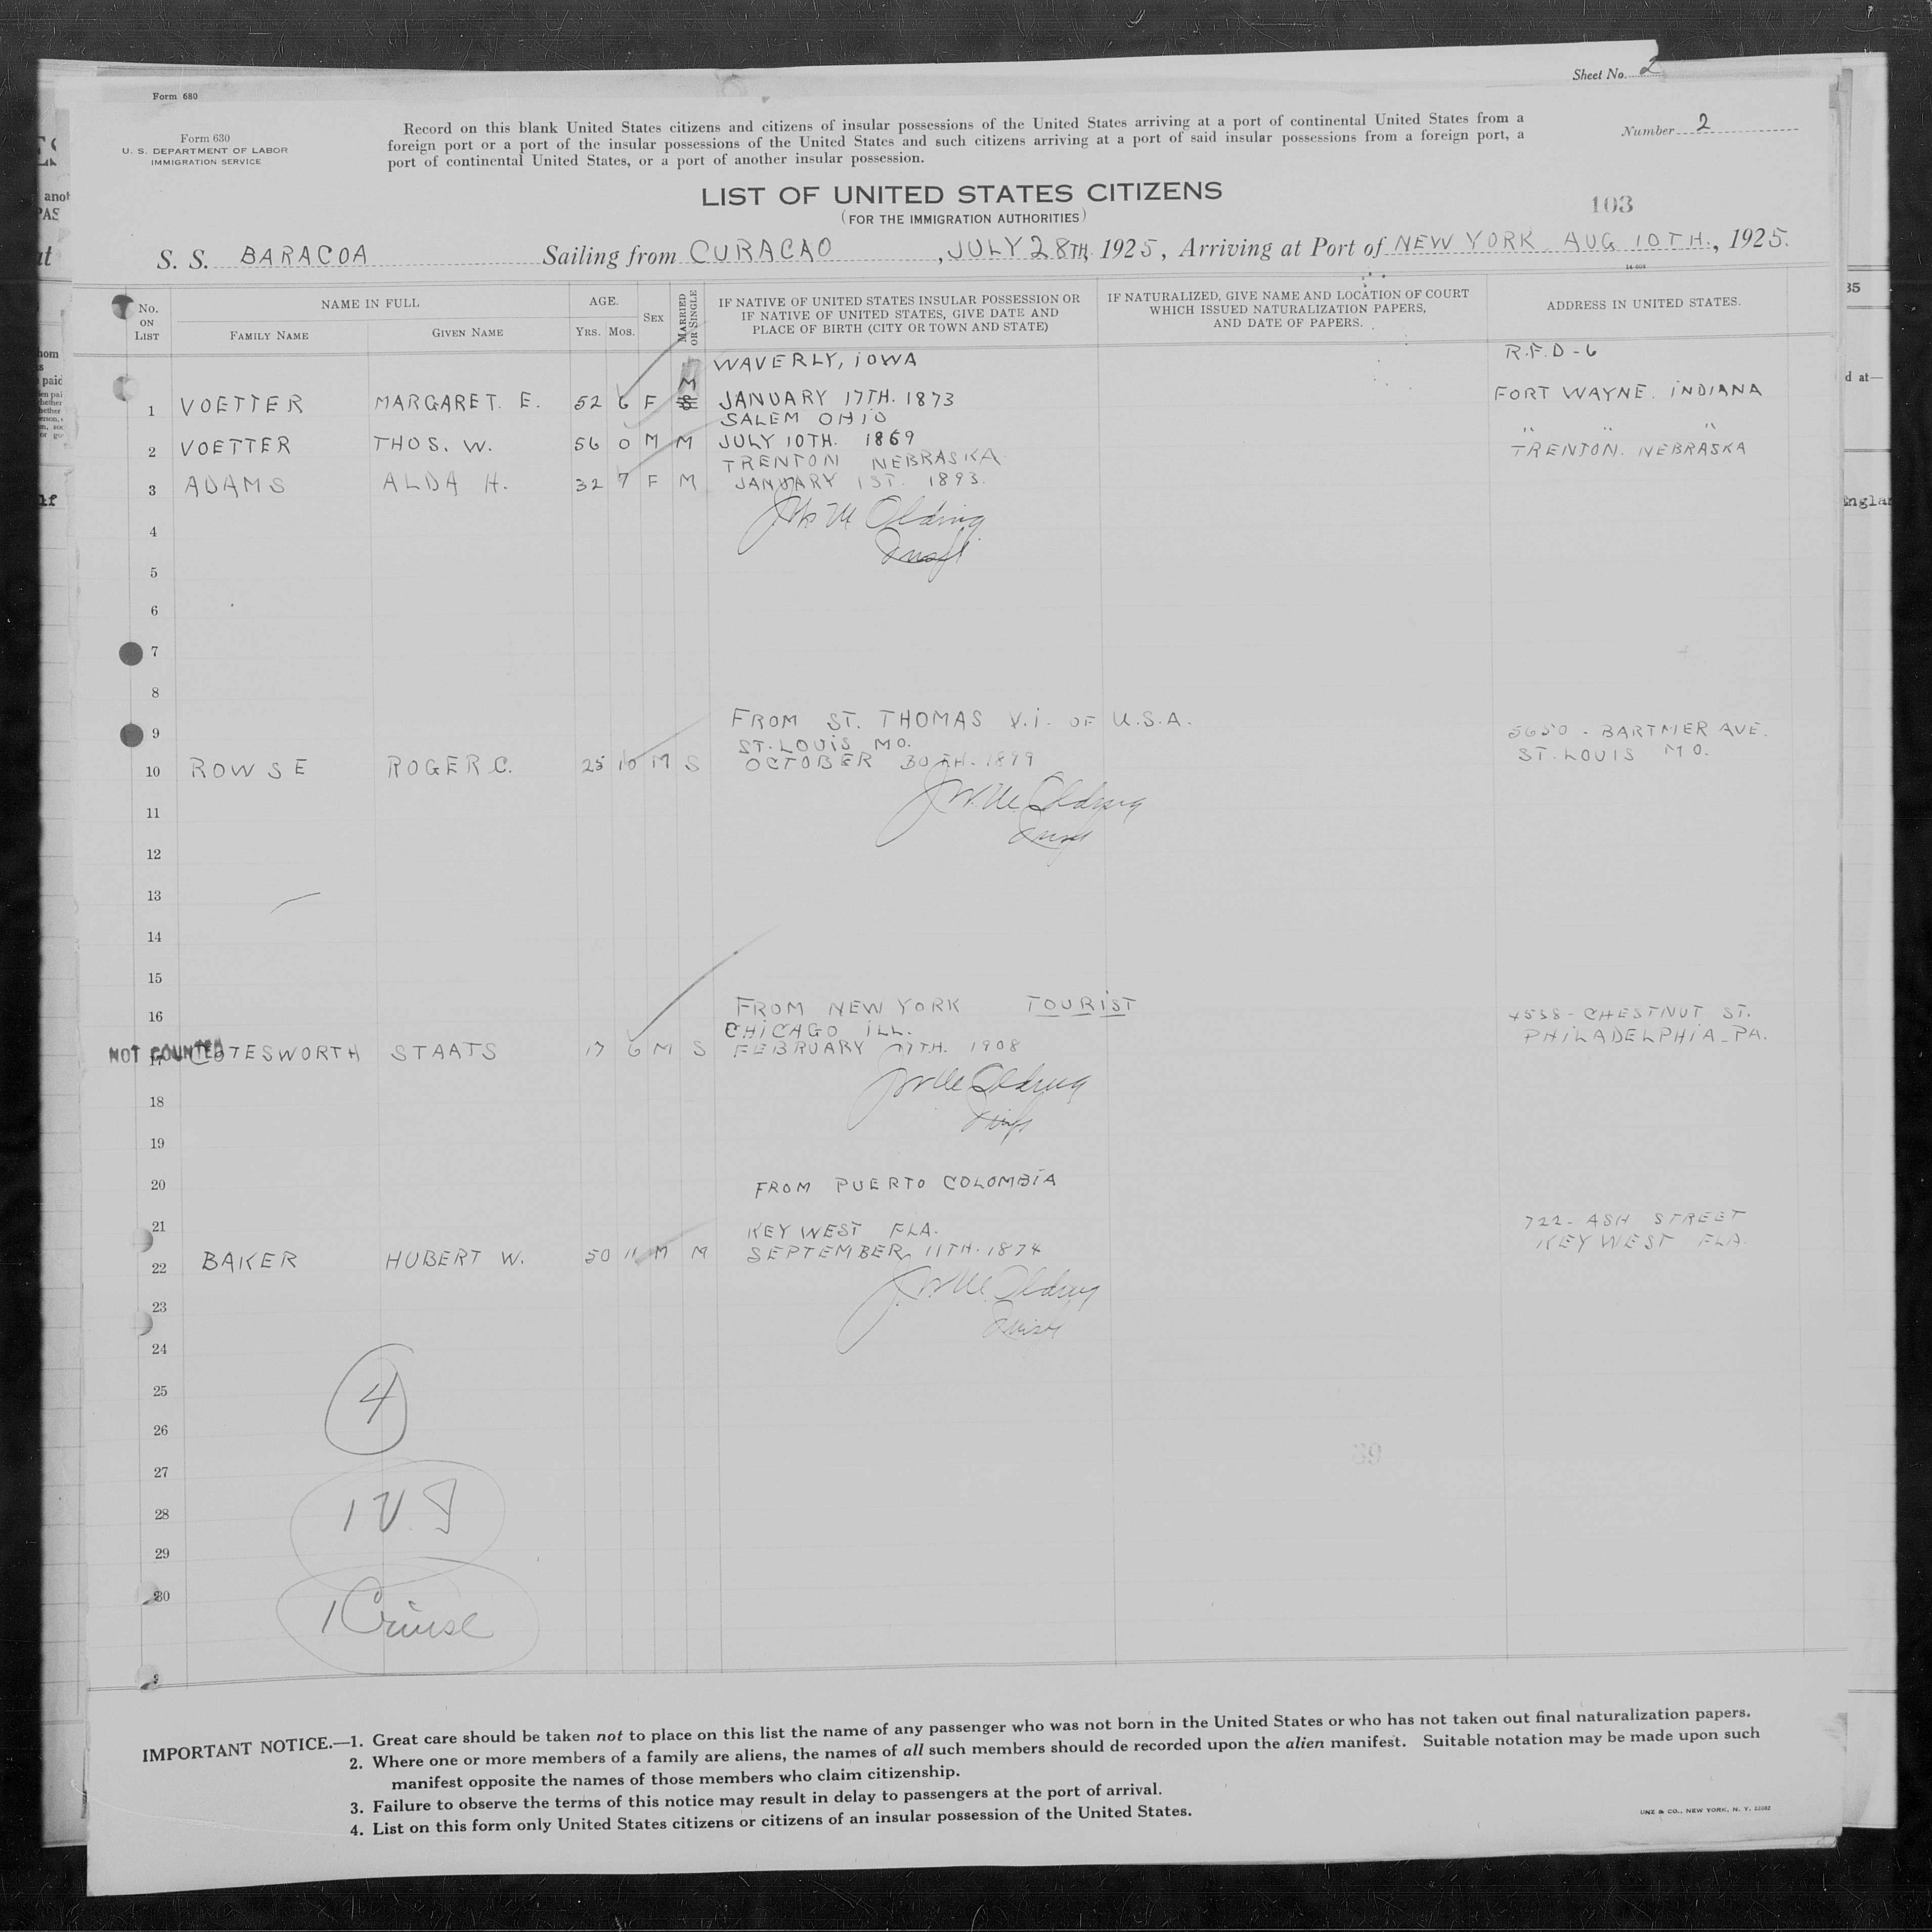 Sheet No. 2
Form 680
Form 630
U. S. DEPARTMENT OF LABOR
IMMIGRATION SERVICE
Record on this blank United States citizens and citizens of insular possessions of the United States arriving at a port of continental United States from a
foreign port or a port of the insular possessions of the United States and such citizens arriving at a port of said insular possessions from a foreign port, a
port of continental United States, or a port of another insular possession.
Number 2
LIST OF UNITED STATES CITIZENS
(FOR THE IMMIGRATION AUTHORITIES)
103
S. S. BARACOA Sailing from CURACAO, JULY 28TH. 1925, Arriving at Port of NEW YORK AUG 10TH., 1925.
No. ON LIST
NAME IN FULL
FAMILY NAME
GIVEN NAME
AGE.
YRS. MOS.
SEX
MARRIED OR SINGLE
IF NATIVE OF UNITED STATES INSULAR POSSESSION OR
IF NATIVE OF UNITED STATES, GIVE DATE AND
PLACE OF BIRTH (CITY OR TOWN AND STATE)
IF NATURALIZED, GIVE NAME AND LOCATION OF COURT
WHICH ISSUED NATURALIZATION PAPERS,
AND DATE OF PAPERS.
ADDRESS IN UNITED STATES.
WAVERLY, IOWA R.F.D-6
1 VOETTER MARGARET. E. 52 6 F M JANUARY 17TH. 1873 FORT WAYNE. INDIANA
SALEM OHIO
2 VOETTER THOS. W. 56 0 M M JULY 10TH. 1869 " " "
TRENTON NEBRASKA TRENTON. NEBRASKA
3 ADAMS ALDA H. 32 7 F M JANUARY 1ST. 1893.
4
5
6
7
8
FROM ST. THOMAS V.I. OF U.S.A.
9 ST. LOUIS MO. 5650 - BARTMER AVE.
10 ROWSE ROGER C. 25 10 M S OCTOBER 30TH. 1899 ST. LOUIS MO.
11
12
13
14
15
16 FROM NEW YORK TOURIST
CHICAGO ILL. 4538- CHESTNUT ST.
NOT COUNTED
17 COTESWORTH STAATS 17 6 M S FEBRUARY 7TH. 1908 PHILADELPHIA_PA.
18
19
20 FROM PUERTO COLOMBIA
21 KEY WEST FLA. 722- ASH STREET
22 BAKER HUBERT W. 50 11 M M SEPTEMBER, 11TH. 1874 KEY WEST FLA.
23
24
25
4
26
27
28
29
30
1 Cruise
IMPORTANT NOTICE.—1. Great care should be taken not to place on this list the name of any passenger who was not born in the United States or who has not taken out final naturalization papers.
2. Where one or more members of a family are aliens, the names of all such members should de recorded upon the alien manifest. Suitable notation may be made upon such
manifest opposite the names of those members who claim citizenship.
3. Failure to observe the terms of this notice may result in delay to passengers at the port of arrival.
4. List on this form only United States citizens or citizens of an insular possession of the United States.
UNZ & CO., NEW YORK, N. Y.